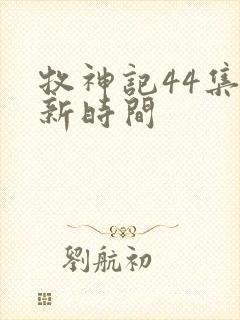 牧神記44集
新時間
劉航初